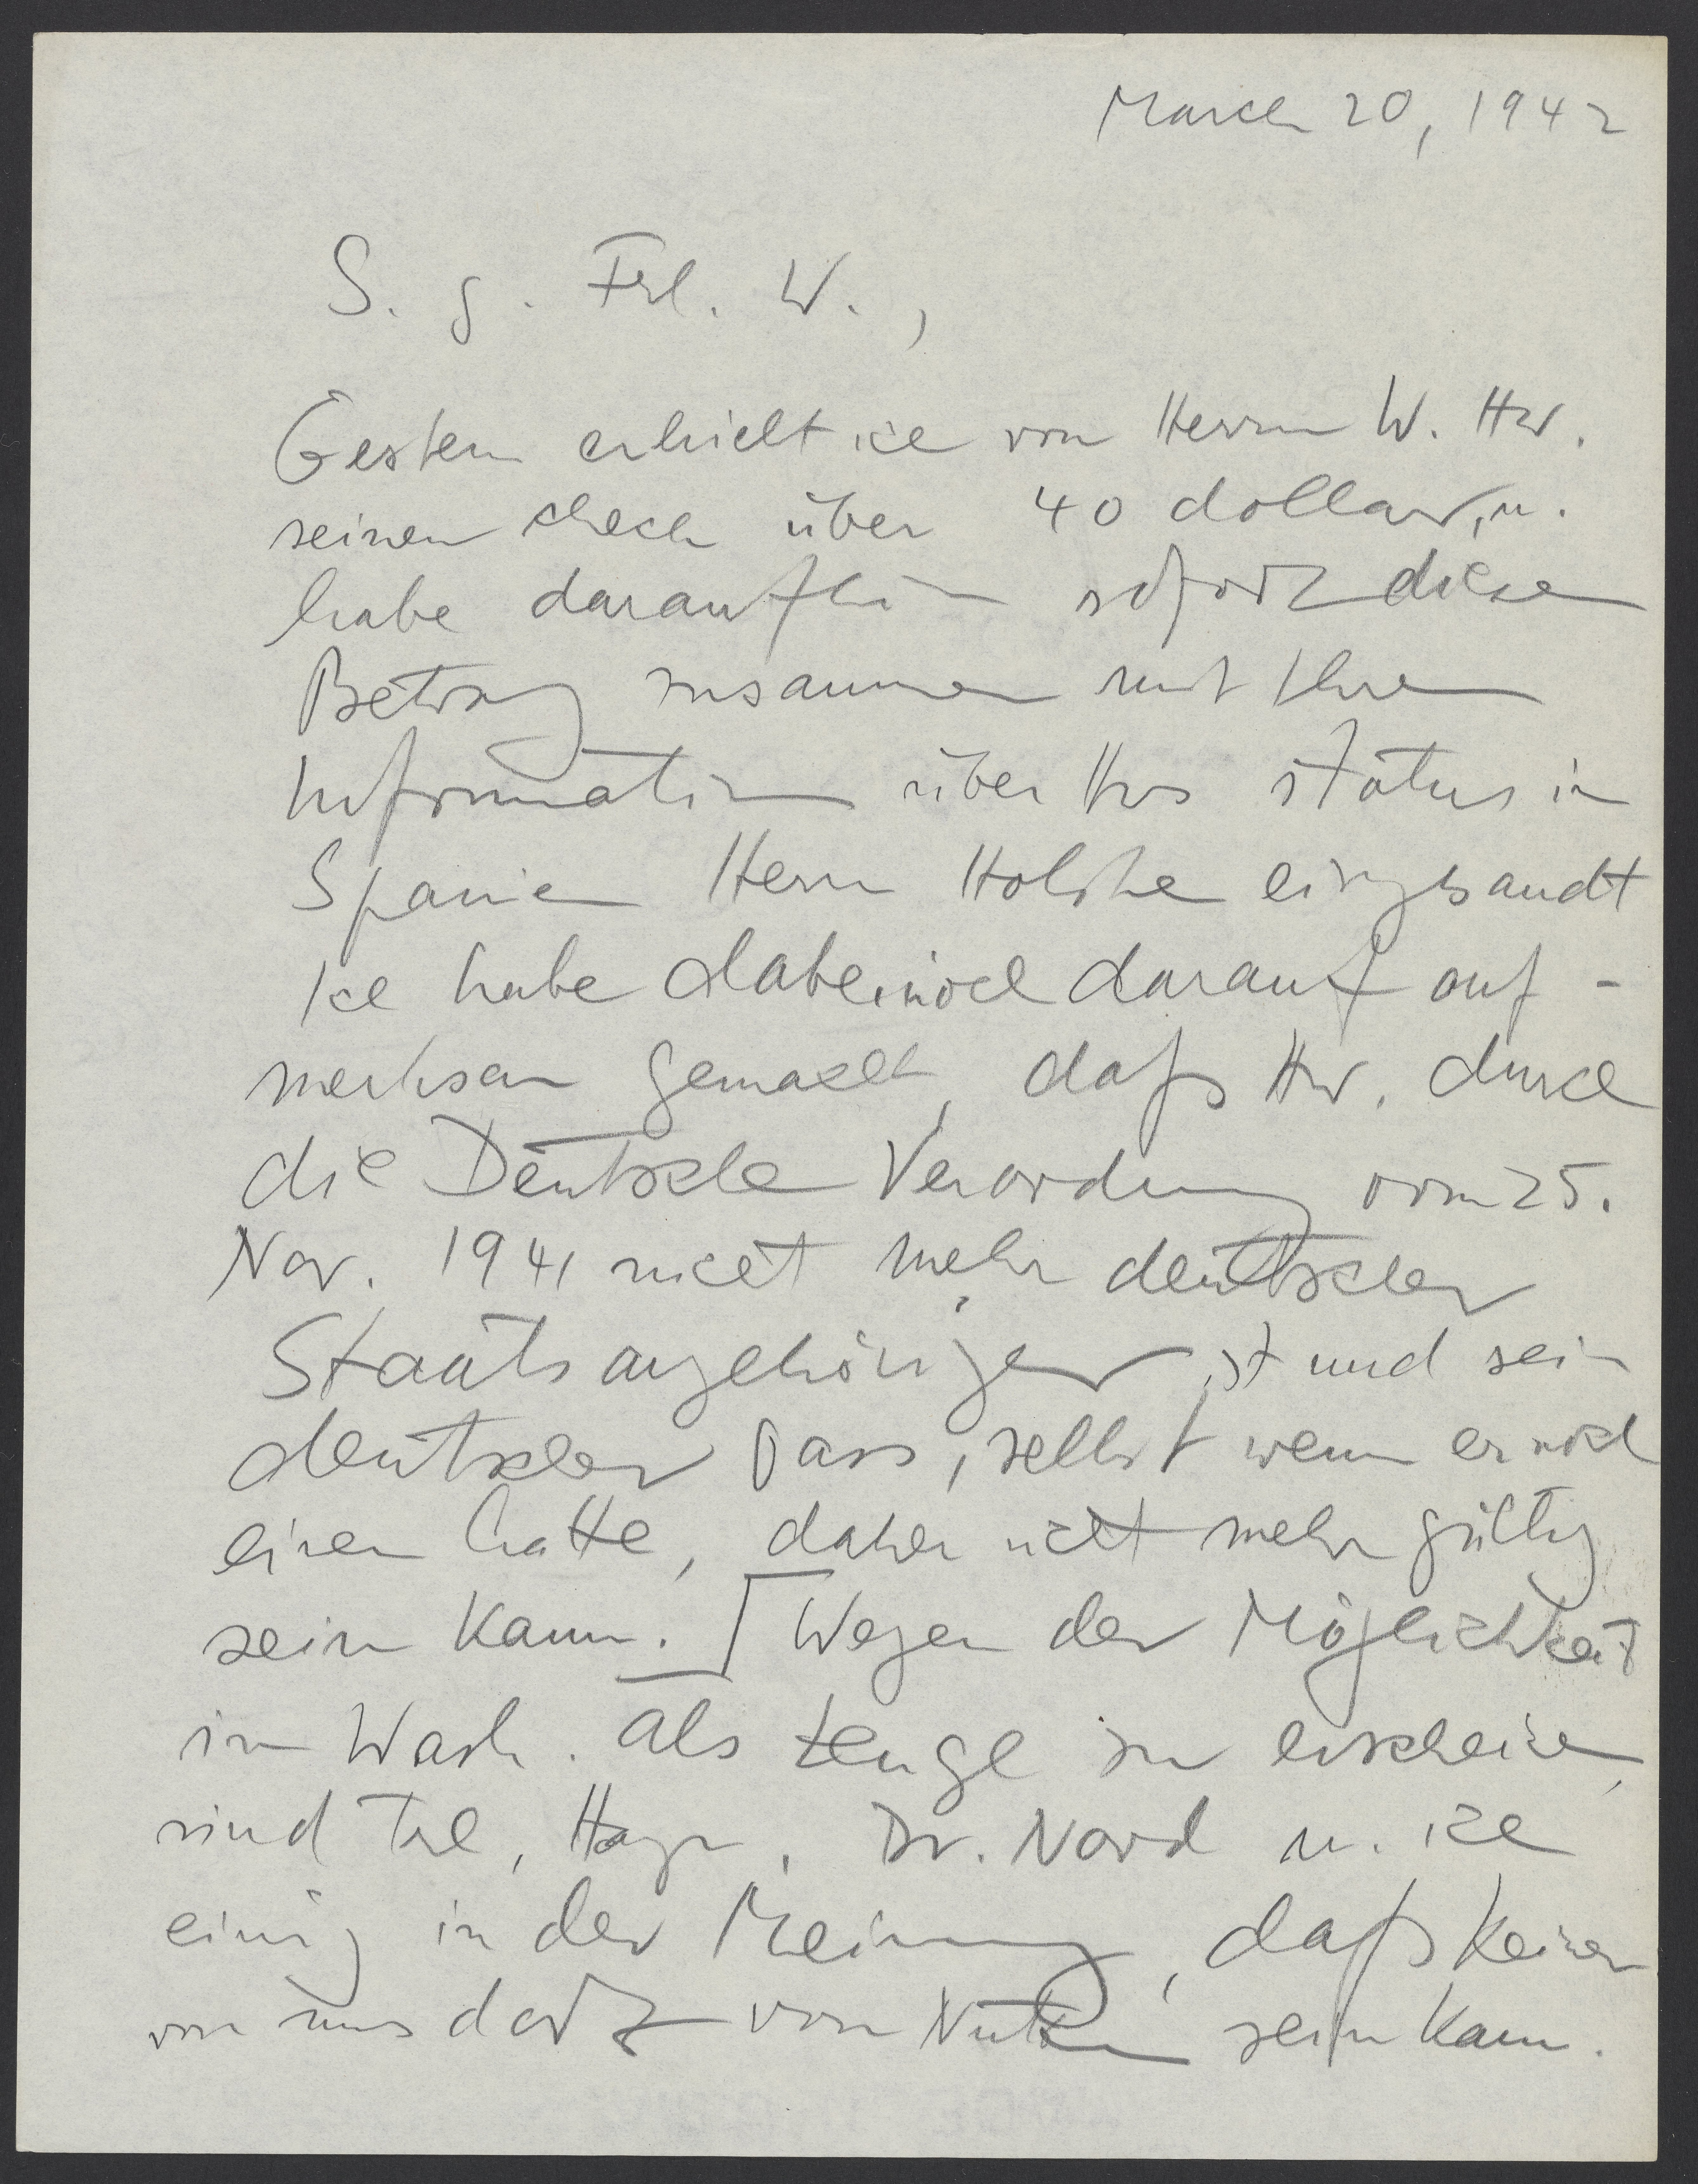 March 20, 1942
S. g. Frl. W.,
Gestern erhielt ich von Herrn W. Hw.
seinen check über 40 dollar, u.
habe daraufhin sofort diesen
Betrag zusammen mit Ihren
Informationen über Hws status in
Spanien Herrn eingesandt
Ich habe dabei noch darauf auf-
merksam gemacht, daß Hw. durch
die Deutsche Verordnung vom 25.
Nov. 1941 nicht mehr deutscher
Staatsangehöriger ist und sein
deutscher Pass, selbst wenn er noch
einen hatte, daher nicht mehr gültig
sein kann. Wegen der Möglichkeit
in Wash. als Zeuge zu erscheinen,
sind Dr. Nord u. ich
einig in der Meinung, daß keiner
von uns dort von Nutzen sein kann.